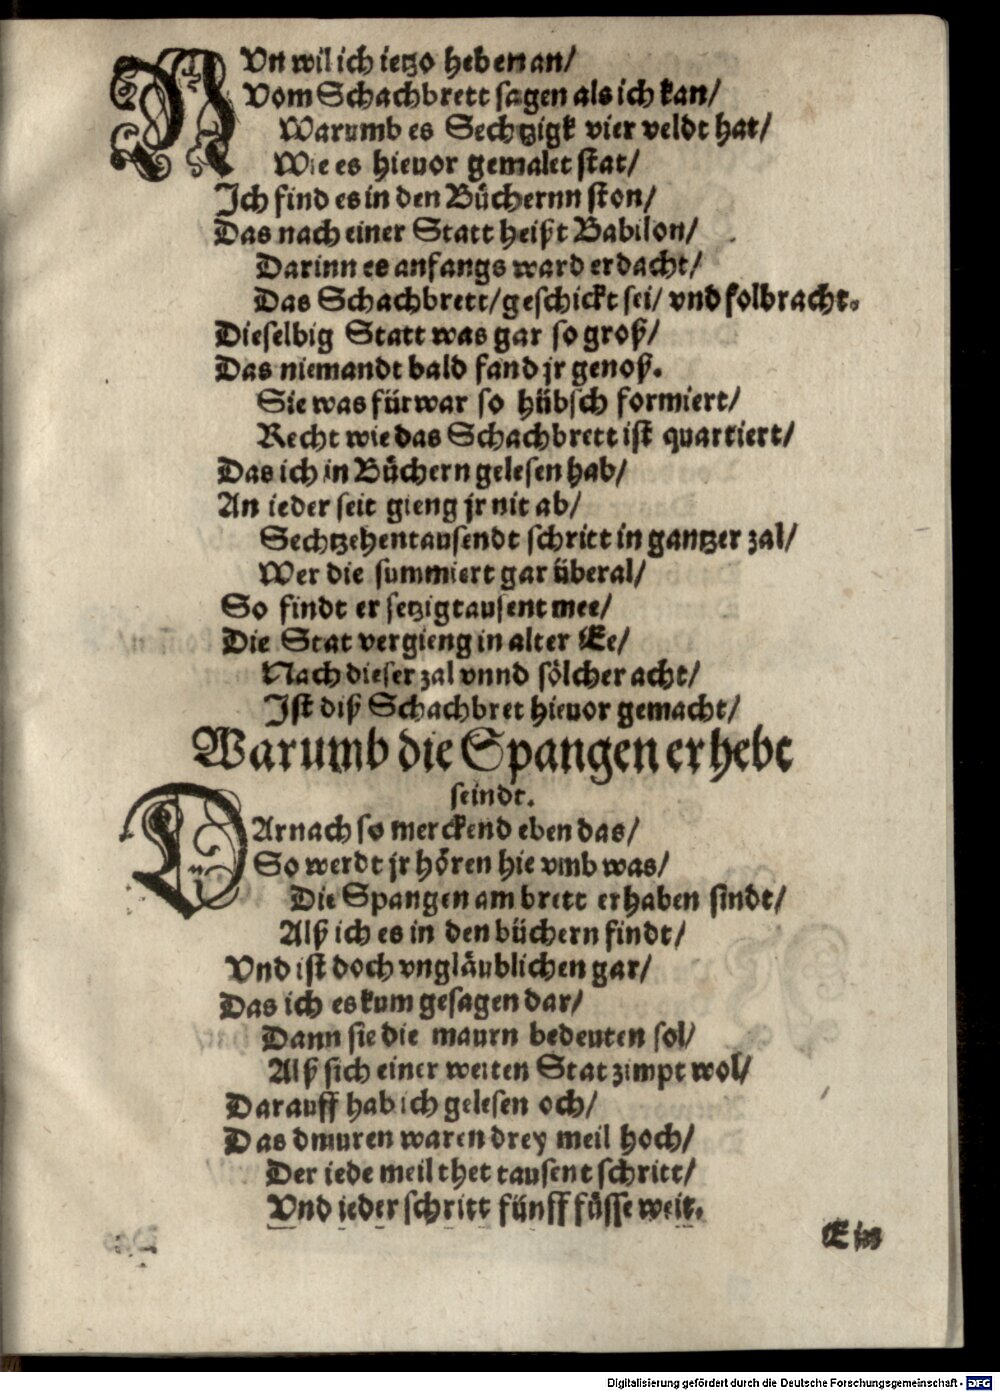 NVn wil ich ietzo heben an/
Vom Schachbrett sagen als ich kan/
Warumb es Sechtzigk vier veldt hat/
Wie es hieuor gemalet stat/
Ich find es in den Büchernn ston/
Das nach einer Statt heißt Babilon/
Darinn es anfangs ward erdacht/
Das Schachbrett/ geschickt sei/ vnd folbracht.
Dieselbig Statt was gar so groß/
Das niemandt bald fand jr genoß.
Sie was fürwar so hübsch formiert/
Recht wie das Schachbrett ist quartiert/
Das ich in Büchern gelesen hab/
An ieder seit gieng jr nit ab/
Sechtzehentausendt schritt in gantzer zal/
Wer die summiert gar überal/
So findt er setzigtausent mee/
Die Stat vergieng in alter Ee/
Nach dieser zal vnnd sölcher acht/
Ist diß Schachbret hieuor gemacht/
Warumb die Spangen erhebt
seindt.
DArnach so merckend eben das/
So werdt jr hören hie vmb was/
Die Spangen am brett erhaben sindt/
Alß ich es in den büchern findt/
Vnd ist doch vngläublichen gar/
Das ich es kum gesagen dar/
Dann sie die maurn bedeuten sol/
Alß sich einer weiten Stat zimpt wol/
Darauff hab ich gelesen och/
Das dmuren waren drey meil hoch/
Der iede meil thet tausent schritt/
Vnd ieder schritt fünff füsse weit.
Ein
Digitalisierung gefördert durch die Deutsche Forschungsgemeinschaft - DFG